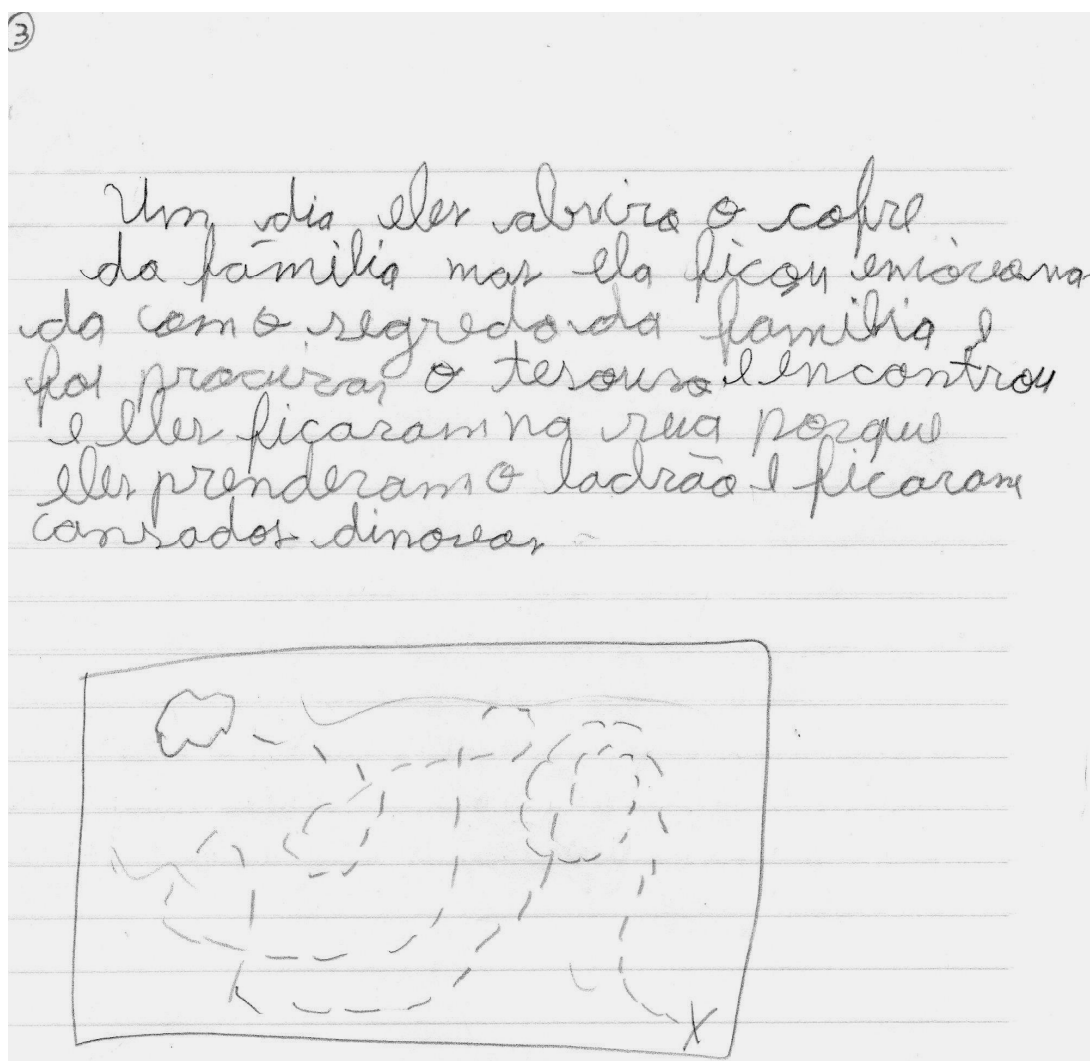 3
Um dia eles abriro o cofre
da fâmilia mas ela ficou
da com o segredo da familia e
foi procurar o tesouro e encontrou
e eles ficaram na rua porque
eles prenderam o ladrão e ficaram
cansados dinovo
X